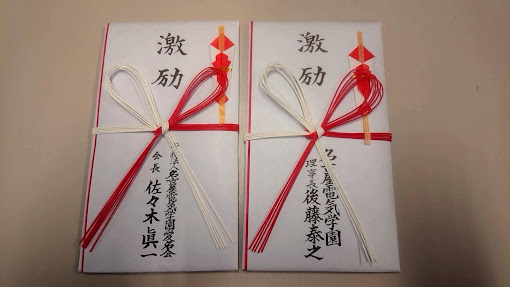 激励
名古屋電気学園愛名会
会長 佐々木眞一
激励
名古屋電気学園
理事長 後藤泰之